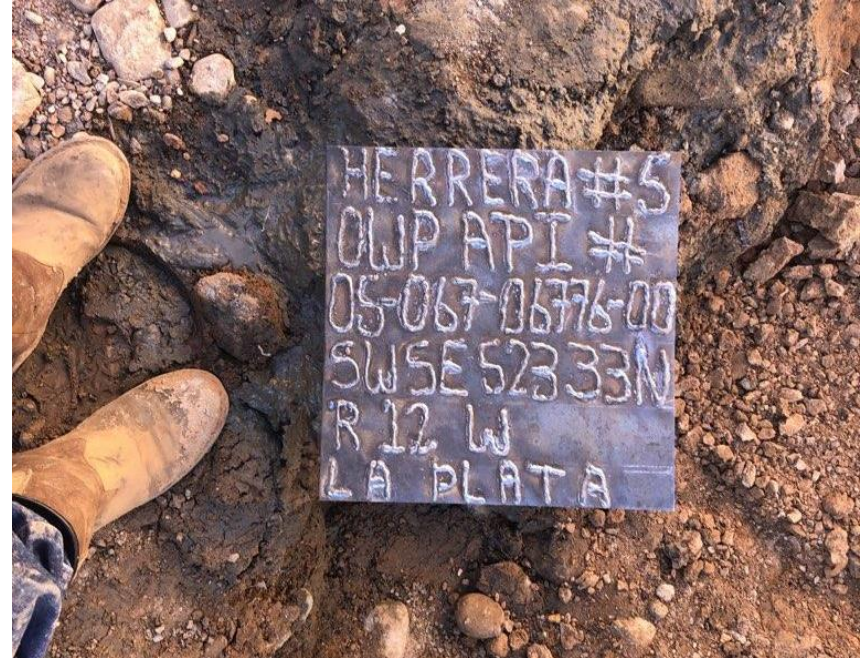 HERRERA #5
OWP API #
05-067-06776-00
SWSE S23 33N
R 12 W
LA PLATA